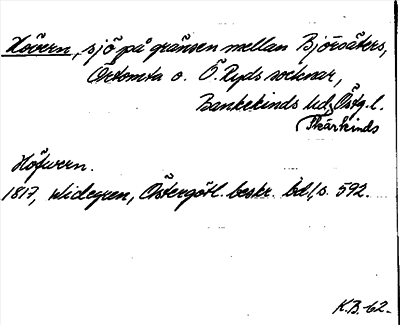 Hövern, sjö på gränsen mellan Björsäters,
Örtomta o. Ö. Ryds socknar,
Bankekinds hd, Östg. l.
Skärkinds
Höfwern.
1817, Widegren, Östergötl. beskr. bd 1, s. 592.
K.B. 62.